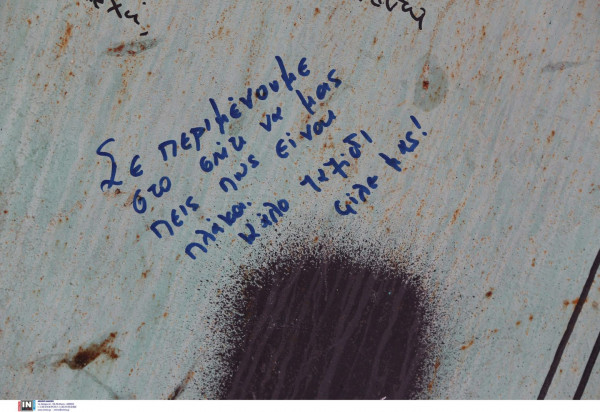 Σε περιμένουμε
στο σπίτι να μας
πεις πως είναι
πλάκα.
Καλο ταξίδι
φίλε μας!
IN